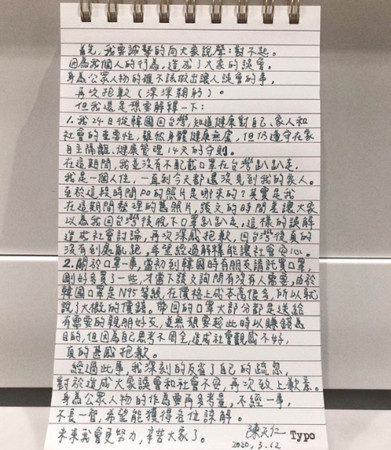 首先,我要誠摯的向大家說聲:對不起。
因為我個人的行為,造成了大家的誤會。
身為公眾人物的確不該做出讓人誤會的事,
再次抱歉(深深鞠躬)。
但我還是想要解釋一下:
1.我24日從韓國回台灣,知道健康對自己、家人和
社會的重要性,雖然身體健康無虞,但仍遵守在家
自主隔離、健康管理14天的守則。
在這期間,我並沒有不配戴口罩在台灣趴趴走。
我是一個人住,一直到今天都還沒見到我的家人。
至於這段時間PO的照片是哪來的?其實是我
在這期間整理的舊照片,張文的時間差讓大家
以為我回台灣後脫下口罩趴趴走,這樣的誤解
造成社會討論,再次深感抱歉,回台灣後真的
沒有到處亂跑,希望經過解釋能讓社會安心。
2.關於口罩一事,當初到韓國時有朋友請託買口罩,
剛好多買了一些,才會下發文詢問有沒有人需要,由於
韓國口罩是N95等級,在價格上成本高很多,所以就
說了大概的價錢。帶回的口罩大部分都是送給
有需要的親朋好友,並無想要趁此時以賺錢為
目的,但因為自己思考不周全,造成社會觀感不好,
真的甚感抱歉。
經過此事,我深刻的反省了自己的疏忽,
對於造成大家誤會和社會不安,再次致上歉意。
身為公眾人物的作為會再多考量,不經一事,
不長一智,希望能獲得各位諒解。
未來我會更努力,辛苦大家了。
陳天仁
2020.3.12
Typo